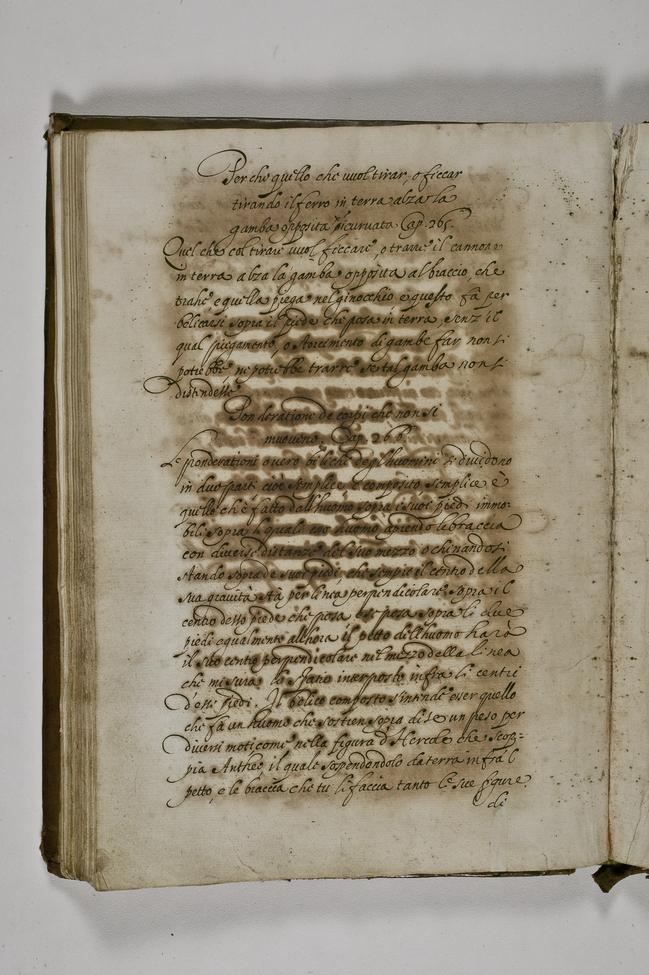 Perche quello che vuol tirar, o ficcar
tirando il ferro in terra alza la
gamba opposita piu curvata Cap. 265.
Quel che col tirare vuol ficcare, o trarre il cannone
in terra alza la gamba opposita al braccio, che
trahe e quella piega nel ginocchio e questo fà per
bilicarsi sopra il piede che posa in terra, senz il
qual piegamento, o storcimento di gambe far non si
potrebbe ne potrebbe trarre se tal gamba non si
distendesse
Ponderatione de corpi che non si
muoveno. Cap. 266.
Le ponderationi overo bilichi degl'huomini si dividono
in due parti cioè semplice e composito semplice è
quello ch'è fatto dall'huomo sopra i suoi piedi immo-
bili sopra li quali esso huomo aprendo le braccia
con diverse distanze del suo mezzo o chinandosi
stando sopra de suoi piedi, che sempre il centro della
sua gravità stà per linea perpendicolare sopra il
centro desso piede che posa e se posa sopra li due
piedi equalmente allhora il petto dell'huomo harà
il suo centro perpendicolare nel mezzo della linea
che misura lo spatio interposto infra li centri
d'essi piedi. Il bilico composto s'intende esser quello
che fà un huomo che sostien sopra di se un peso per
diversi moti come nella figura d'Hercole che scop-
pia Antheo il quale sospendendolo da terra infra l
petto, e le braccia che tu li faccia tanto le sue figure
di